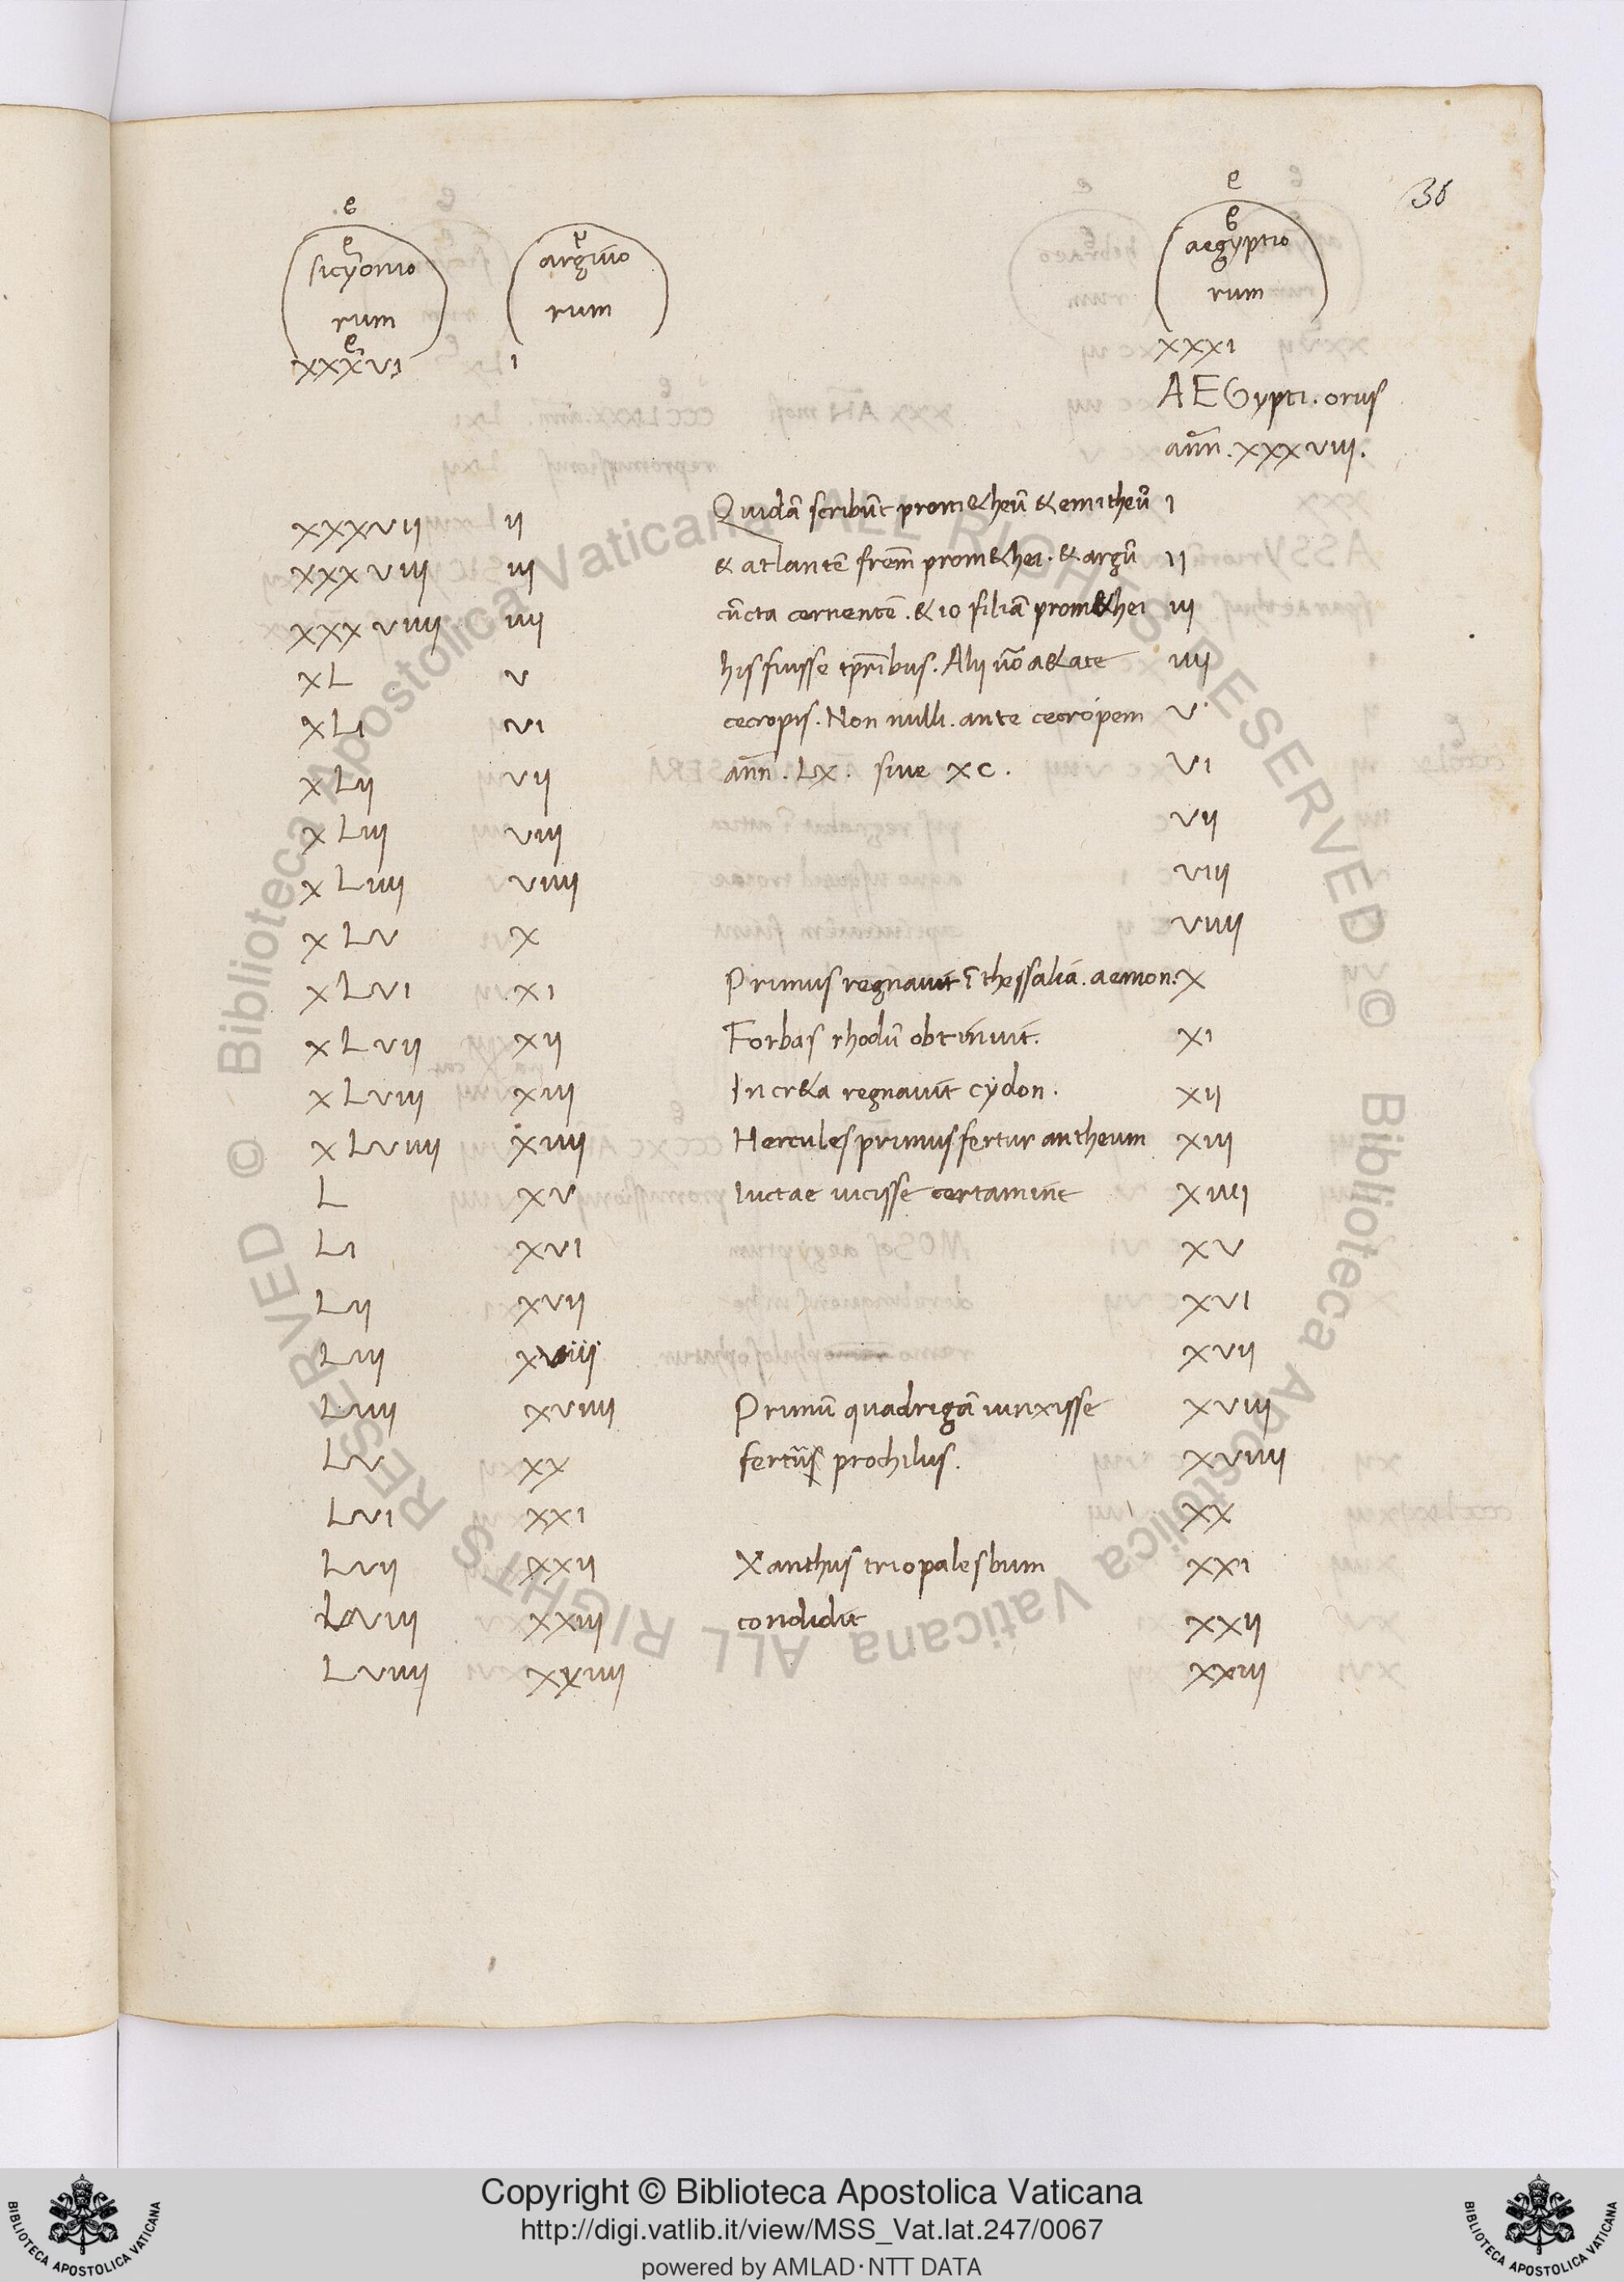 30
e e e
e e e
sicyonio arguio aegyptio
rum rum rum
e
xxxvi i xxxi
AEGypti. orus
ann. xxxviii.
xxxvii ii Quidā scribūt prom&heū & emitheū i
xxxviii iii & atlantē frem̄ prom&hei. & argū ii
xxxviiii iiii cūcta cernentē. & io filiā prom&hei iii
xL v his fuisse tpr̄ibus. Alii ūo a&ate iiii
xLi vi cecropis. Non nulli. ante cecropem v
xLii vii ann̄. Lx. sive xc. vi
xLiii viii vii
xLiiii viiii viii
xLv x viiii
xLvi xi Primus regnavit ī thessaliā. aemon. x
xLvii xii Forbas rhodū obtinuit. xi
xLviii xiii In cr&a regnavit cydon. xii
xLviiii xiiii Hercules primus fertur antheum xiii
L xv luctae vicisse certamine xiiii
Li xvi xv
Lii xvii xvi
Liii xviii xvii
Liiii xviiii Primū quadrigā iunxisse xviii
Lv xx prochilus. xviiii
Lvi xxi xx
Lvii xxii Xanthus triopa lesbum xxi
Lviii xxiii condidit xxii
Lviiii xxiiii xxiii
© Biblioteca Apostolica Vaticana ALL RIGHTS RESERVED
© Biblioteca Apostolica Vaticana ALL RIGHTS RESERVED
BIBLIOTECA APOSTOLICA VATICANA
Copyright © Biblioteca Apostolica Vaticana
http://digi.vatlib.it/view/MSS_Vat.lat.247/0067
powered by AMLAD·NTT DATA
BIBLIOTECA APOSTOLICA VATICANA